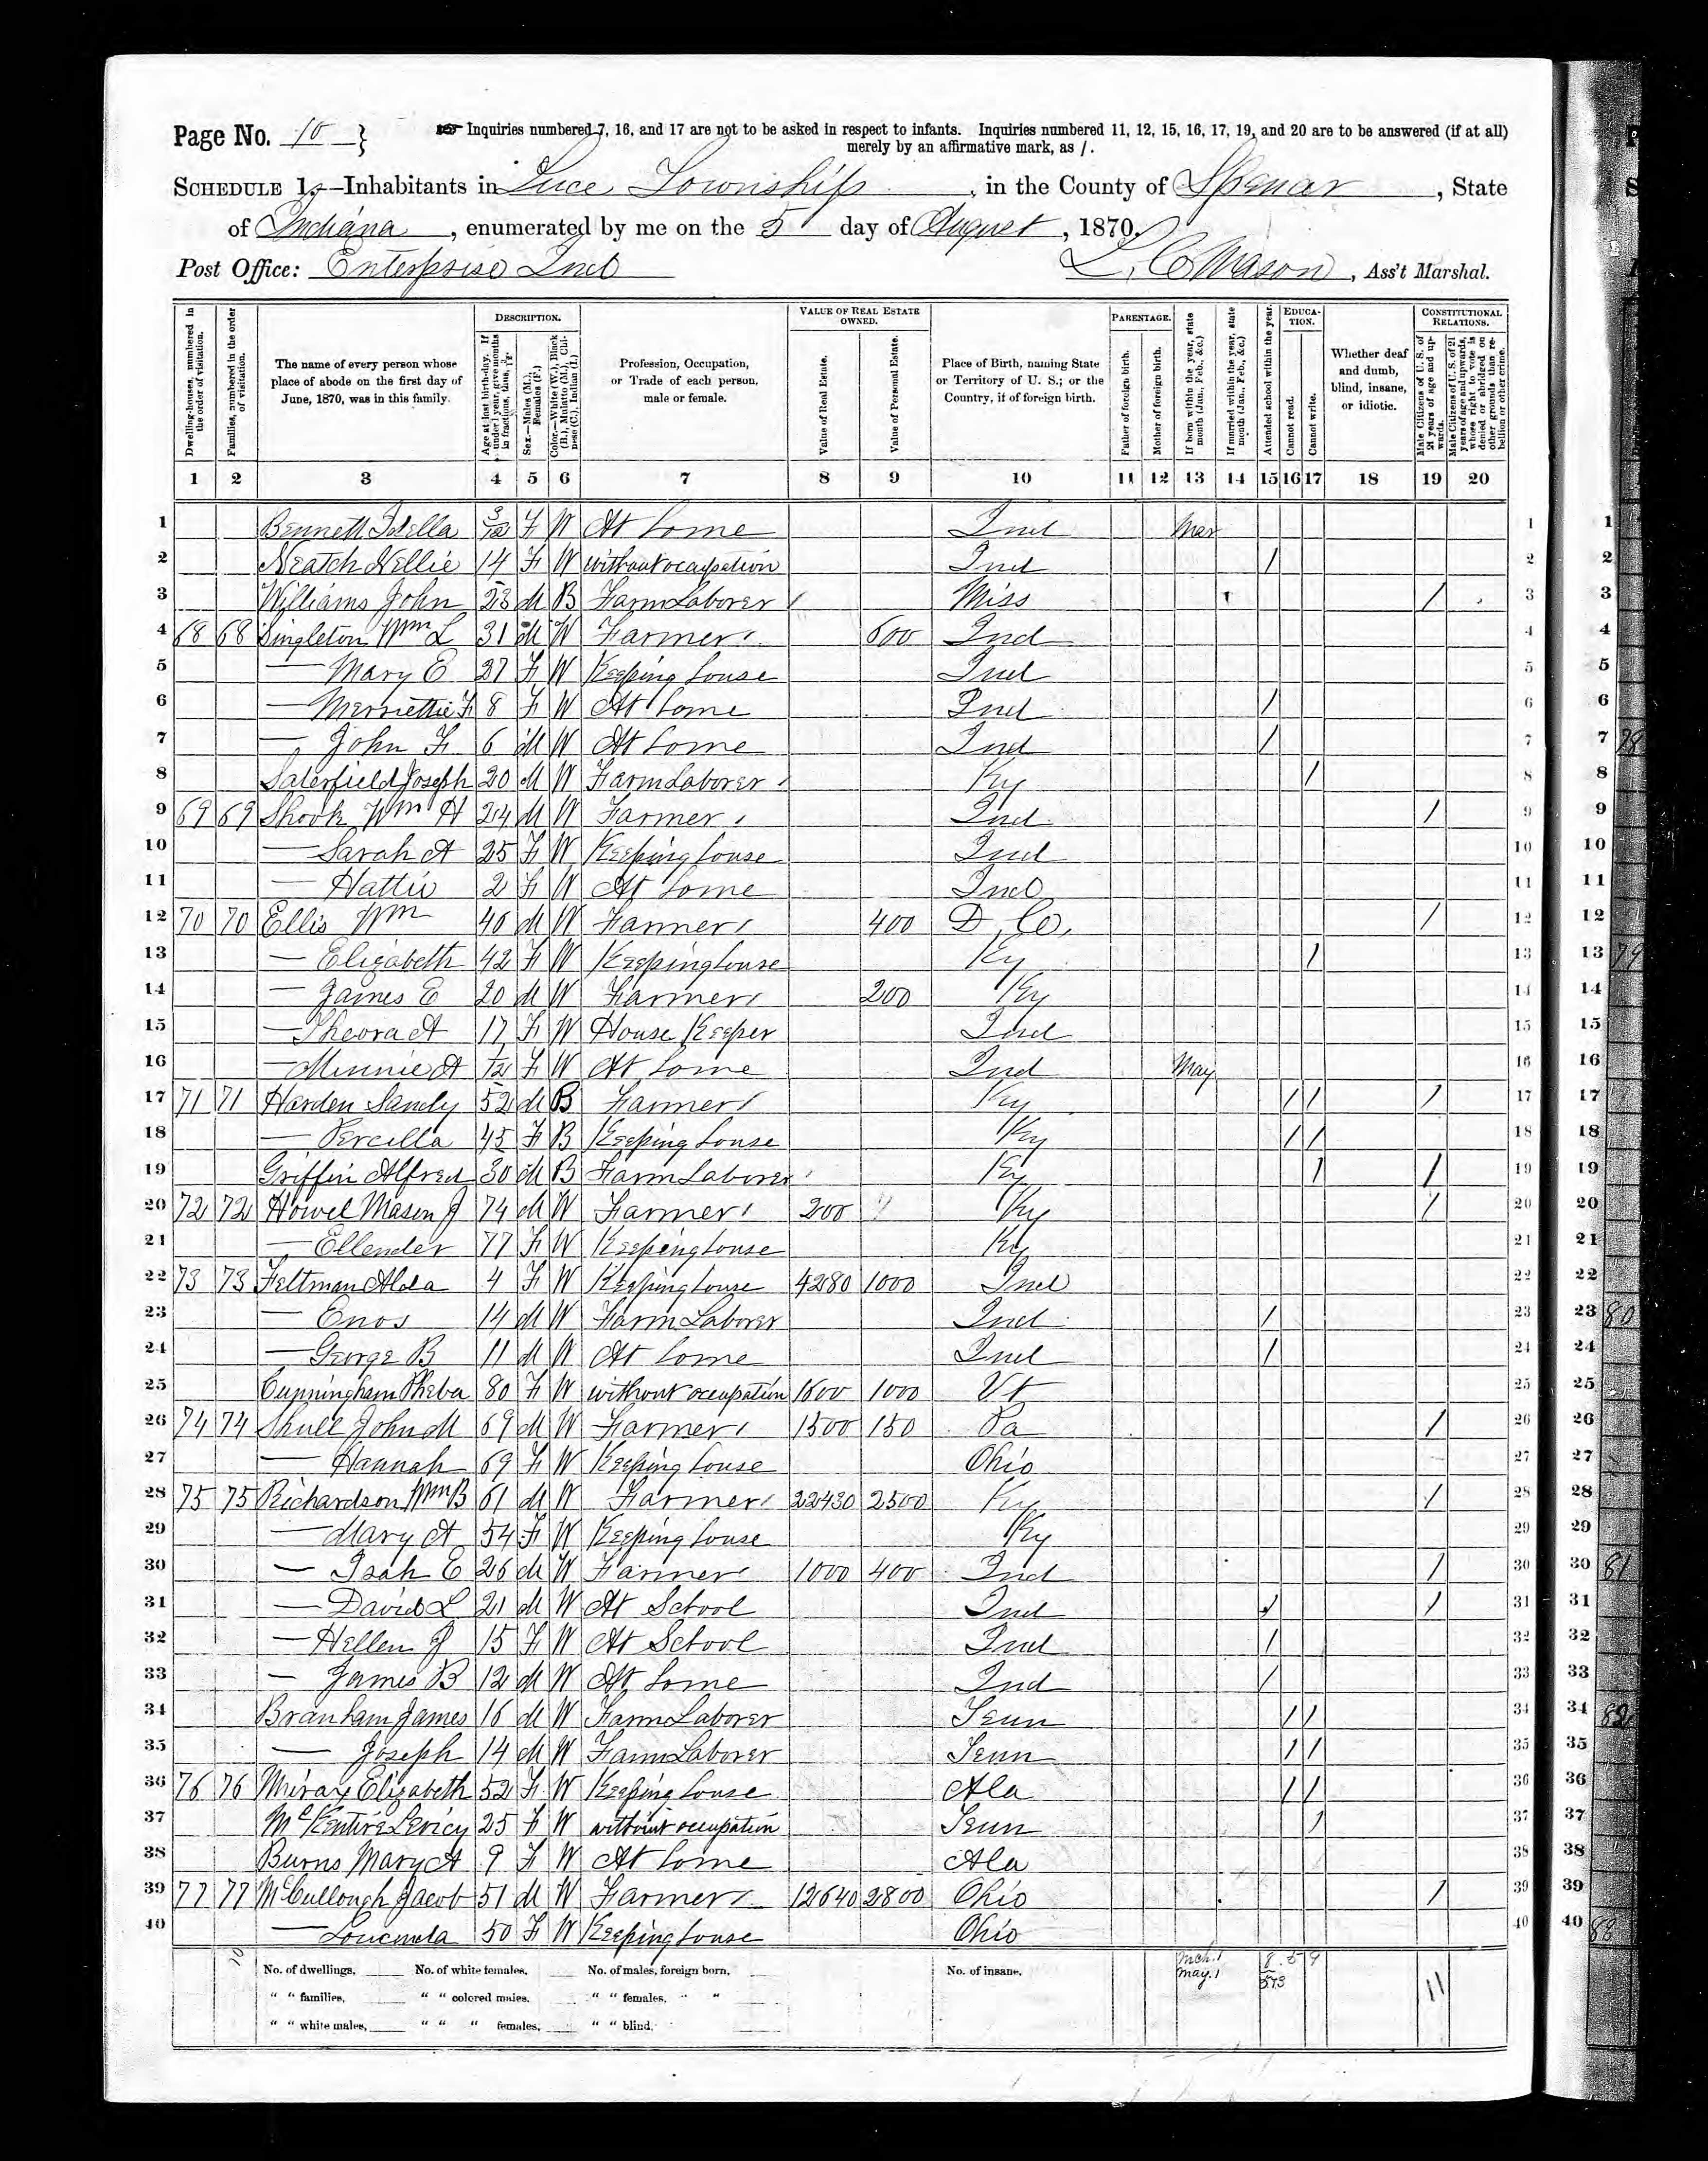 Page No. 10 }
Inquiries numbered 7, 16, and 17 are not to be asked in respect to infants. Inquiries numbered 11, 12, 15, 16, 17, 19, and 20 are to be answered (if at all)
merely by an affirmative mark, as /.
SCHEDULE 1.—Inhabitants in Luce Township, in the County of Spencer, State
of Indiana, enumerated by me on the 5 day of August, 1870.
Post Office: Enterprise Ind L. C Mason, Ass't Marshal.
Dwelling-houses, numbered in the order of visitation.
Families, numbered in the order of visitation.
The name of every person whose place of abode on the first day of June, 1870, was in this family.
DESCRIPTION.
Age at last birth-day. If under 1 year, give months in fractions, thus, 3/12.
Sex.—Males (M.), Females (F.)
Color.—White (W.), Black (B.), Mulatto (M.), Chinese (C.), Indian (I.)
Profession, Occupation, or Trade of each person, male or female.
VALUE OF REAL ESTATE OWNED.
Value of Real Estate.
Value of Personal Estate.
Place of Birth, naming State or Territory of U. S.; or the Country, if of foreign birth.
PARENTAGE.
Father of foreign birth.
Mother of foreign birth.
If born within the year, state month (Jan., Feb., &c.)
If married within the year, state month (Jan., Feb., &c.)
Attended school within the year.
EDUCATION.
Cannot read.
Cannot write.
Whether deaf and dumb, blind, insane, or idiotic.
CONSTITUTIONAL RELATIONS.
Male Citizens of U. S. of 21 years of age and upwards.
Male Citizens of U. S. of 21 years of age and upwards, whose right to vote is denied or abridged on other grounds than rebellion or other crime.
1 2 3 4 5 6 7 8 9 10 11 12 13 14 15 16 17 18 19 20
1 Bennett Idella 3/12 F W At home Ind Mar 1 1
2 Neatch Nellie 14 F W without occupation Ind / 2 2
3 Williams John 23 M B Farm Laborer Miss / 3 3
4 68 68 Singleton Wm L 31 M W Farmer 600 Ind 4 4
5 — Mary E 27 F W Keeping house Ind 5 5
6 — Merriettie F 8 F W At home Ind / 6 6
7 — John F 6 M W At home Ind / 7 7
8 Saterfield Joseph 20 M W Farm Laborer Ky / 8 8
9 69 69 Shook Wm H 24 M W Farmer Ind / 9 9
10 — Sarah A 25 F W Keeping house Ind 10 10
11 — Hattie 2 F W At home Ind 11 11
12 70 70 Ellis Wm 46 M W Farmer 400 D. Co. / 12 12
13 — Elizabeth 42 F W Keeping house Ky / 13 13
14 — James E 20 M W Farmer 200 Ky 14 14
15 — Theora A 17 F W House Keeper Ind 15 15
16 — Minnie A 1/12 F W At home Ind May 16 16
17 71 71 Harden Sandy 52 M B Farmer Ky / / / 17 17
18 — Percilla 45 F B Keeping house Ky / / 18 18
19 Griffin Alfred 30 M B Farm Laborer Ky / / 19 19
20 72 72 Howel Mason J 74 M W Farmer 200 Ky / 20 20
21 — Ellender 77 F W Keeping house Ky 21 21
22 73 73 Feltman Alda 4 F W Keeping house 4280 1000 Ind 22 22
23 — Enos 14 M W Farm Laborer Ind / 23 23
24 — George B 11 M W At home Ind / 24 24
25 Cunningham Pheba 80 F W without occupation 1600 1000 Vt 25 25
26 74 74 Shull John M 69 M W Farmer 1500 150 Pa / 26 26
27 — Hannah 69 F W Keeping house Ohio 27 27
28 75 75 Richardson Wm B 61 M W Farmer 22430 2500 Ky / 28 28
29 — Mary A 54 F W Keeping house Ky 29 29
30 — Isah E 26 M W Farmer 1000 400 Ind / 30 30
31 — David L 21 M W At School Ind / / 31 31
32 — Hellen J 15 F W At School Ind / 32 32
33 — James B 12 M W At home Ind / 33 33
34 Branham James 16 M W Farm Laborer Tenn / / 34 34
35 — Joseph 14 M W Farm Laborer Tenn / / 35 35
36 76 76 Murax Elizabeth 52 F W Keeping house Ala / / 36 36
37 McKentire Levicy 25 F W without occupation Tenn / 37 37
38 Burns Mary A 9 F W At home Ala 38 38
39 77 77 McCullough Jacob 51 M W Farmer 12640 2800 Ohio / 39 39
40 — Loucinda 50 F W Keeping house Ohio 40 40
10 No. of dwellings, No. of white females, No. of males, foreign born, No. of insane, Mch. 1 8 5 9 11
" " families, " " colored males, " " females, " " May. 1
" " white males, " " " females, " " blind,